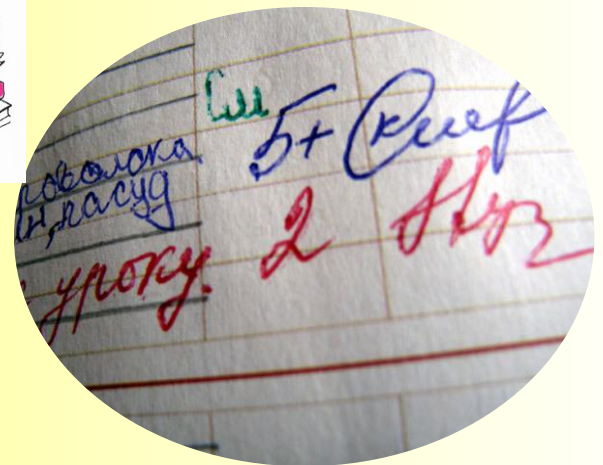 См
роволока 5+
н, пасуд
уроку. 2